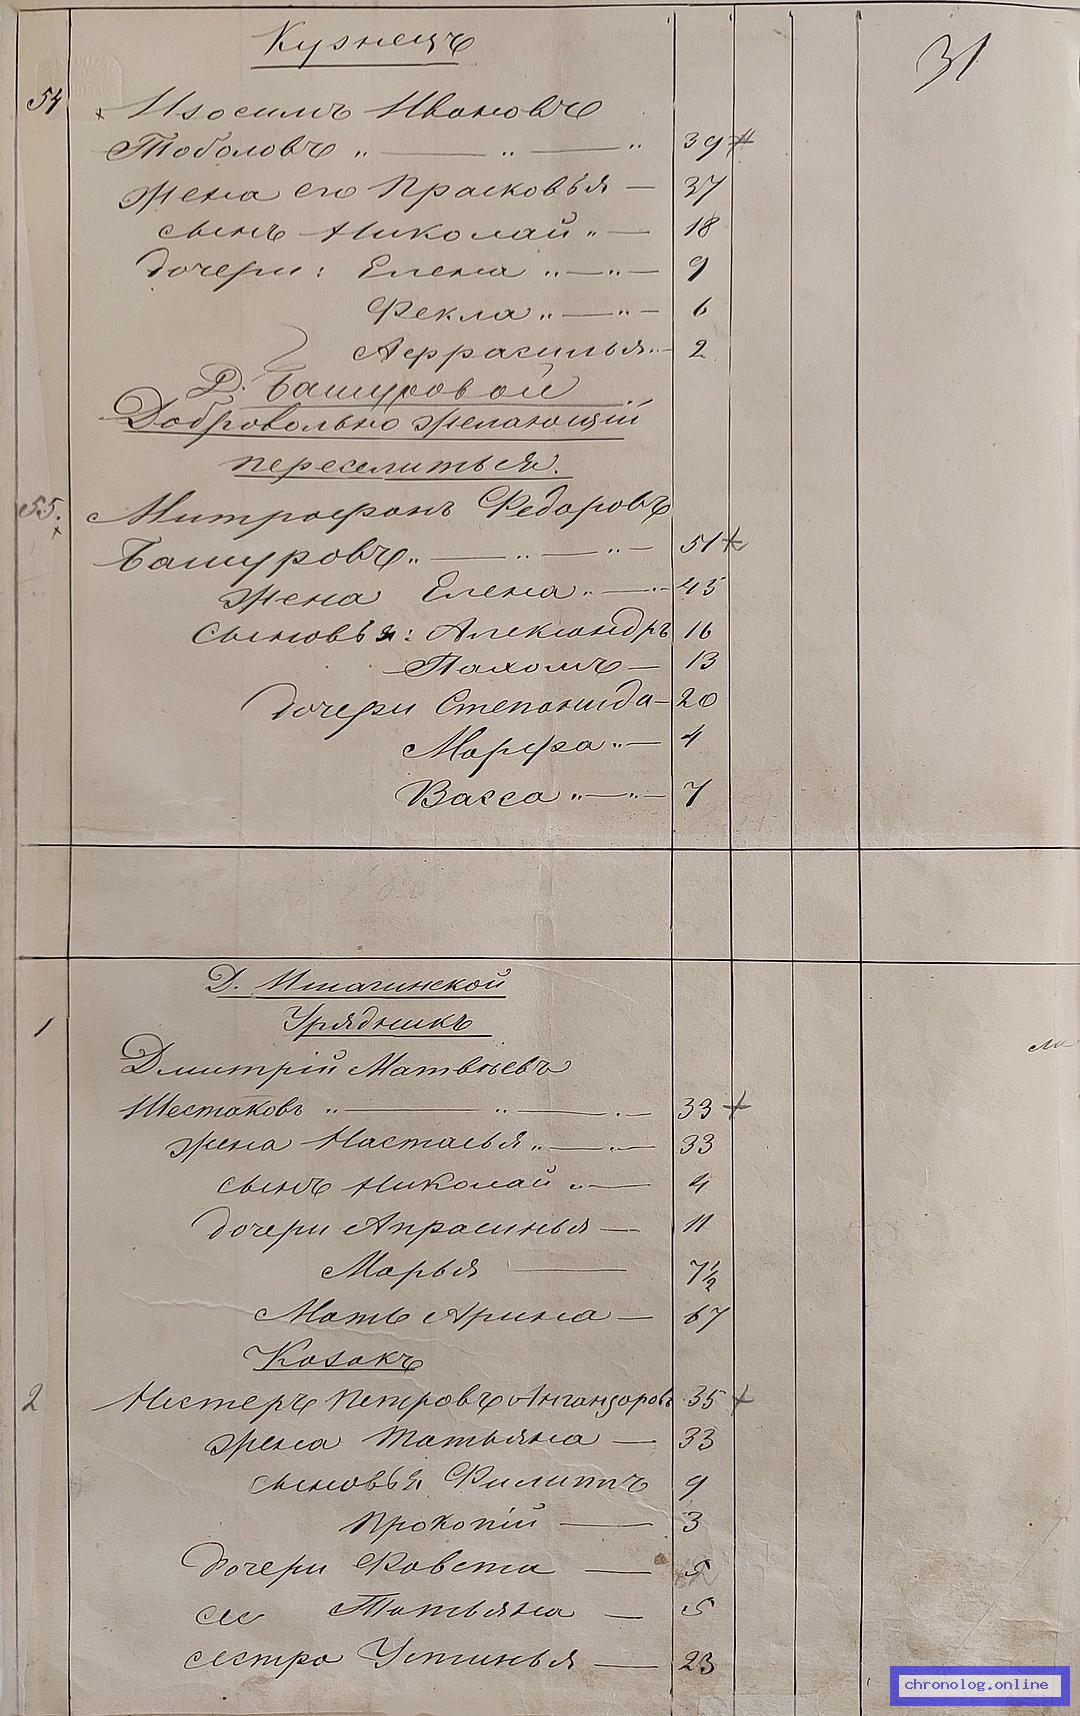 Кузнецъ
31
54 Изосимъ Ивановъ
Тоболовъ „ — „ — „ 39
жена его Прасковья — 37
сынъ Николай „ — 18
дочери: Елена „ — „ — 9
Фекла „ — „ — 6
2
Д. Башуровой
Добровольно желающій
переселиться.
55. Митрофанъ Федоровъ
Башуровъ „ — „ — „ — 51
жена Елена „ — „ 45
сыновья: Александръ 16
Пахомъ — 13
дочери Степанида — 20
Марфа „ — 4
Васса „ — „ — 7
Д. Ишагинской
1 Урядникъ
Дмитрій Матвѣевъ
Шестаковъ „ — „ — „ — 33
жена Настасья „ — „ — 33
сынъ Николай „ — 4
дочери Апрасинья — 11
Марья — 7½
Мать Арина — 67
Козакъ
2 Нестеръ Петровъ 35
жена Татьяна — 33
сыновья Филиппъ 9
Прокопій — 3
дочери —
Татьяна — 5
сестра Устинья — 23
chronolog.online